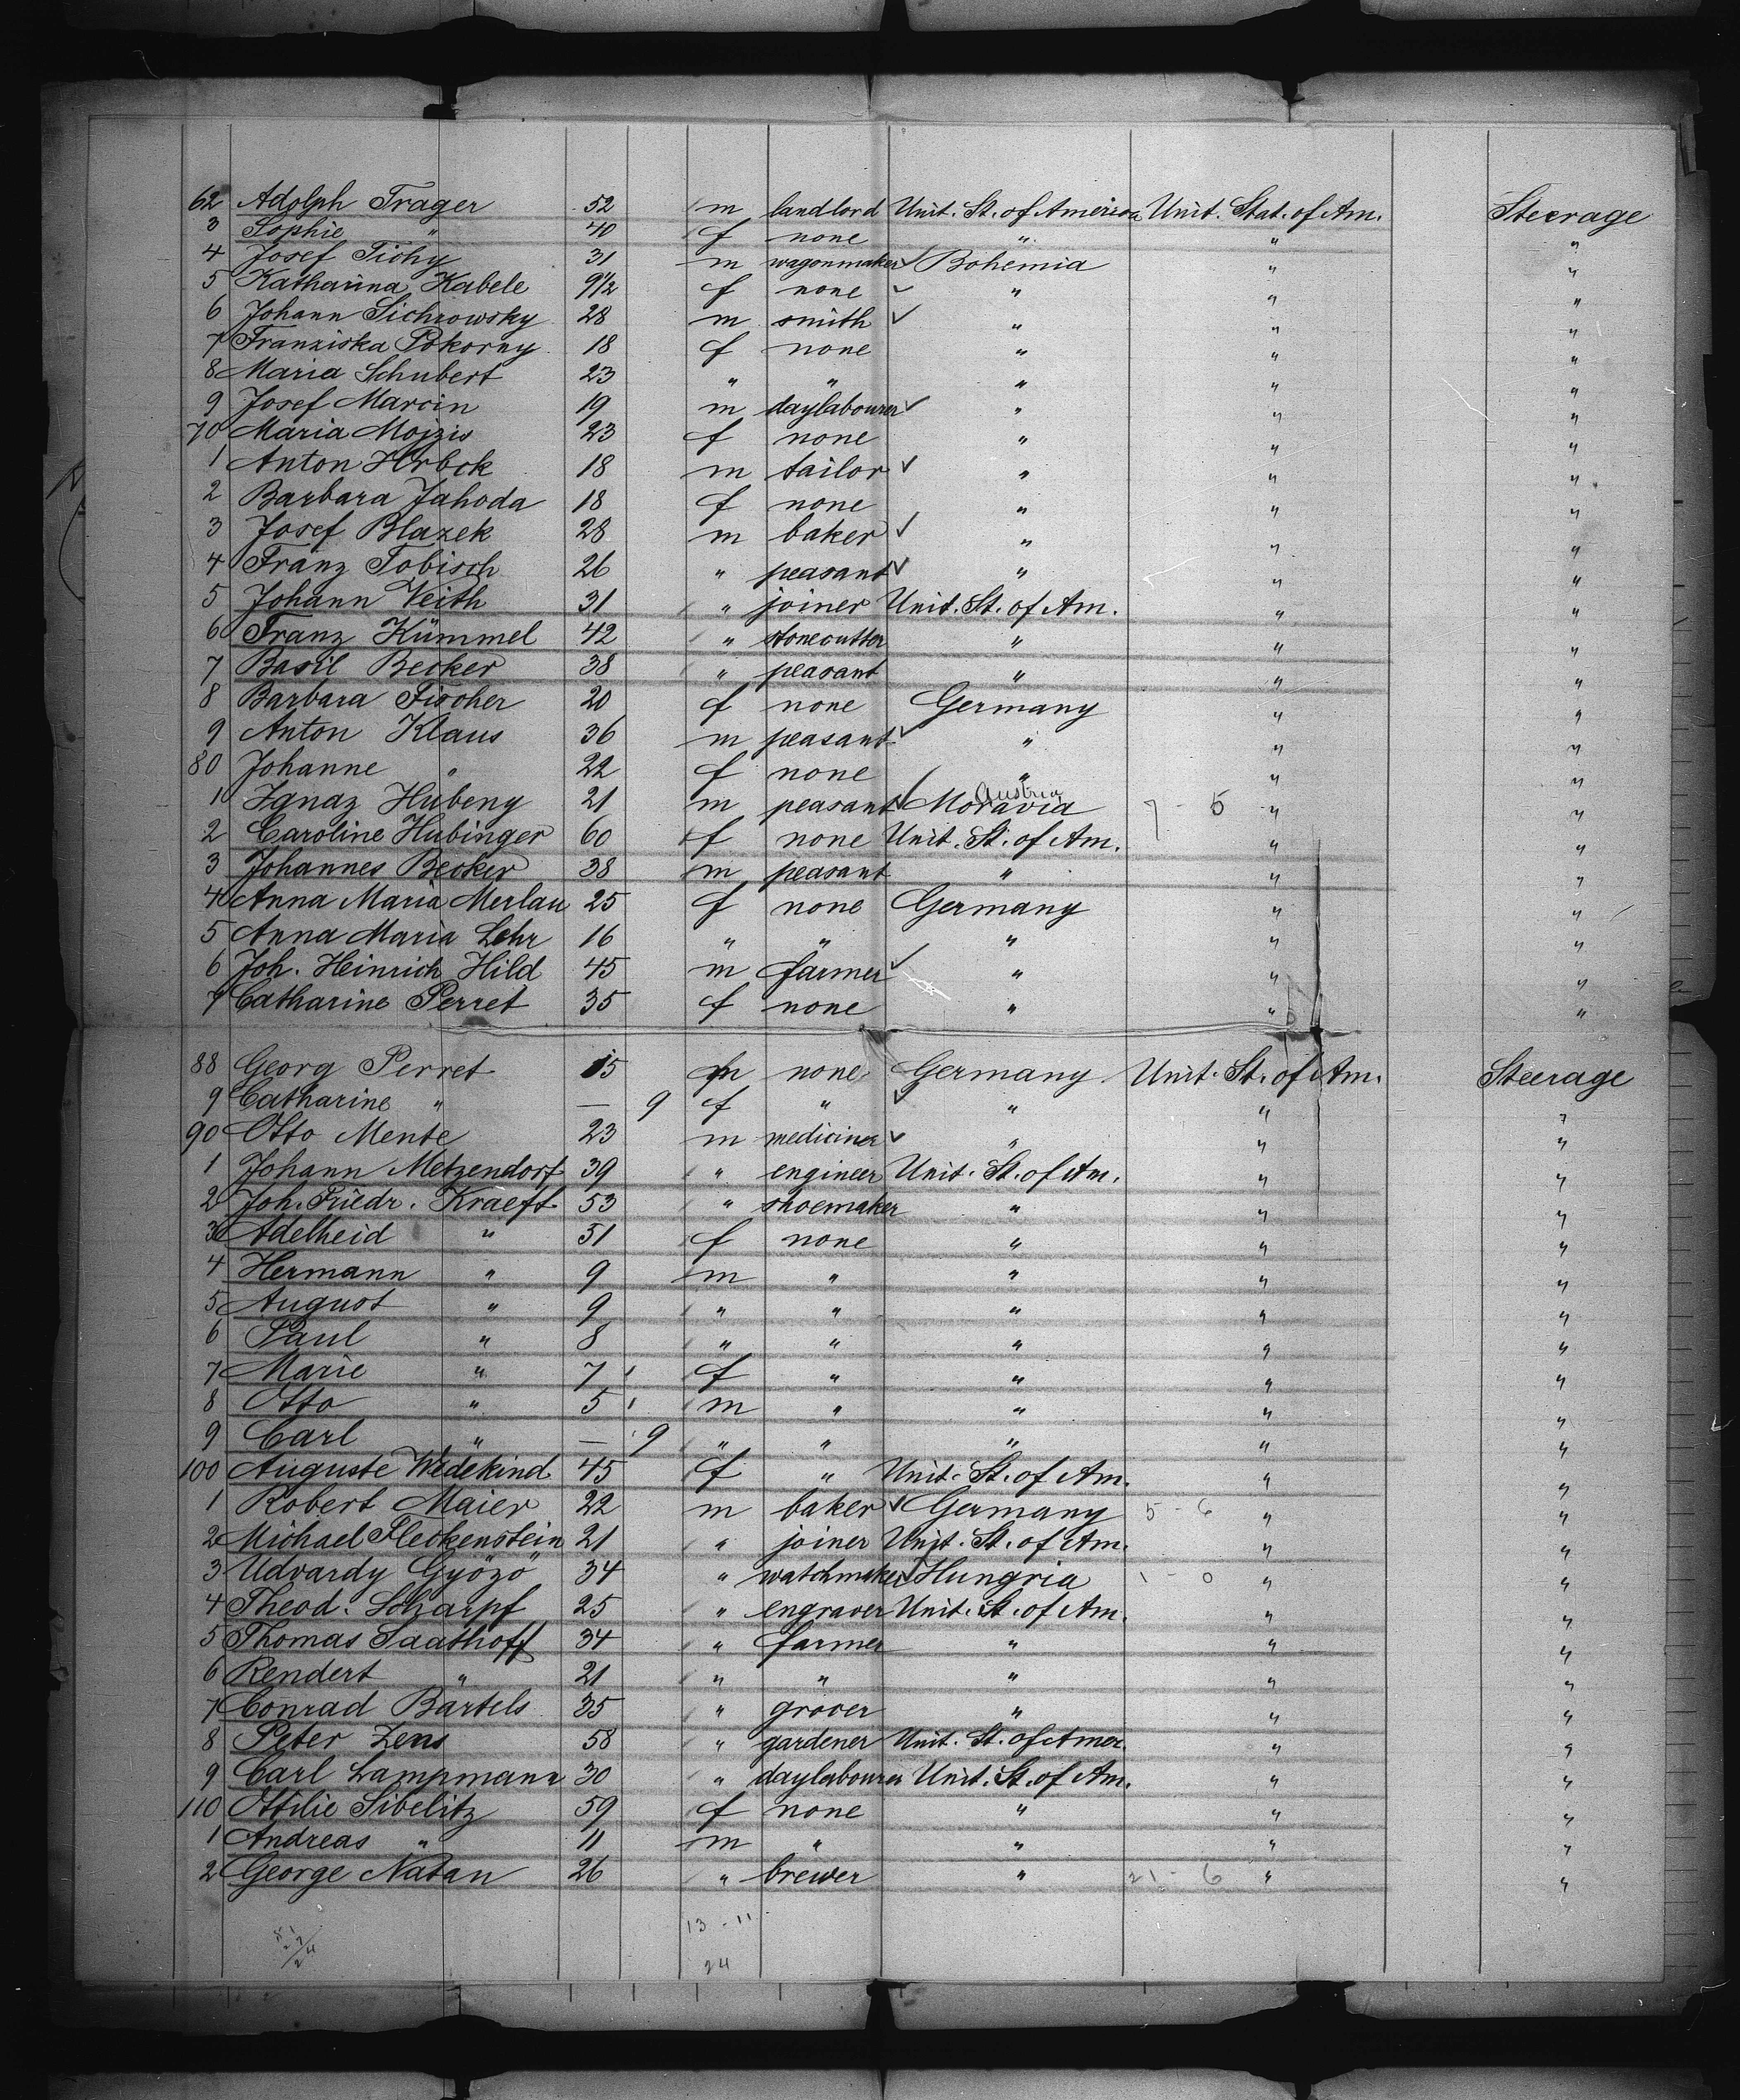 62 Adolph Trager 52 m landlord Unit. St. of America Unit. Stat. of Am. Steerage
3 Sophie " 40 f none " " "
4 Josef Tichy 31 m wagonmaker ✓ Bohemia " "
5 Katharina Kabele 9 1/2 f none ✓ " " "
6 Johann Sichrowsky 28 m smith ✓ " " "
7 Franziska Pokorny 18 f none " " "
8 Maria Schubert 23 " " " " "
9 Josef Marcin 19 m daylabourer ✓ " " "
70 Maria Mojzis 23 f none " " "
1 Anton Hrbek 18 m tailor ✓ " " "
2 Barbara Jahoda 18 f none " " "
3 Josef Blazek 28 m baker ✓ " " "
4 Franz Tobisch 26 " peasant ✓ " " "
5 Johann Veith 31 " joiner Unit. St. of Am. " "
6 Franz Kümmel 42 " stonecutter " " "
7 Basil Becker 38 " peasant " " "
8 Barbara Fischer 20 f none Germany " "
9 Anton Klaus 36 m peasant ✓ " " "
80 Johanne " 22 f none " " "
Austria
1 Ignaz Hubeny 21 m peasant ✓ Moravia 7 - 5 " "
2 Caroline Hubinger 60 f none Unit. St. of Am. " "
3 Johannes Becker 38 m peasant " " "
4 Anna Maria Merlau 25 f none Germany " "
5 Anna Maria Lehr 16 " " " " "
6 Joh. Heinrich Hild 45 m farmer ✓ " " "
7 Catharine Perret 35 f none " " "
88 Georg Perret 15 m none Germany Unit. St. of Am. Steerage
9 Catharine " — 9 f " ✓ " " "
90 Otto Mente 23 m mediciner ✓ " " "
1 Johann Metzendorf 39 " engineer Unit. St. of Am. " "
2 Joh. Friedr. Kraeft 53 " shoemaker " " "
3 Adelheid " 51 f none " " "
4 Hermann " 9 m " " " "
5 August " 9 " " " " "
6 Paul " 8 " " " " "
7 Marie " 7 f " " " "
8 Otto " 5 m " " " "
9 Carl " — 9 " " " " "
100 Auguste Wedekind 45 f " Unit. St. of Am. " "
1 Robert Maier 22 m baker ✓ Germany 5 - 6 " "
2 Michael Fleckenstein 21 " joiner Unit. St. of Am. " "
3 Udvardy Győző 34 " watchmaker ✓ Hungria 1 - 0 " "
4 Theod. 25 " engraver Unit. St. of Am. " "
5 Thomas Saathoff 34 " farmer " " "
6 Rendert " 21 " " " " "
7 Conrad Bartels 35 " grocer " " "
8 Peter Zens 58 " gardener Unit. St. of Amer. " "
9 Carl Lampmann 30 " daylabourer Unit. St. of Am. " "
110 Ottilie Sibelitz 59 f none " " "
1 Andreas " 11 m " " " "
2 George Natan 26 " brewer " 21 - 6 " "
13 - 11
24